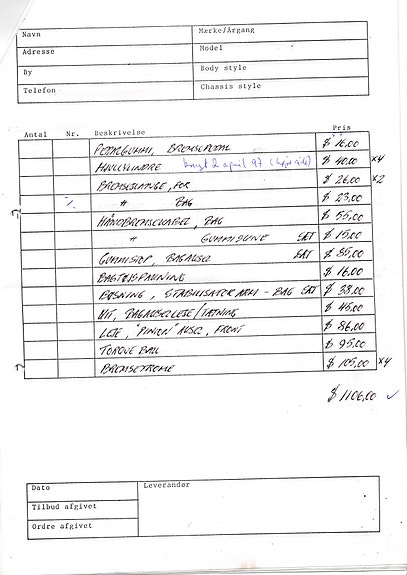 Navn Mærke/Årgang
Adresse Model
By Body style
Telefon Chassis style
Antal Nr. Beskrivelse Pris
POTALGUMMI, BREMSEPEDAL $ 16.00
HJULCYLINDRE brugt 2 april 97 ( $ 40.00 x4
BREMSESLANGE, FOR $ 26.00 x2
" BAG $ 23.00
HÅNDBREMSEKABEL, BAG $ 55,00
" GUMMIBUNE SÆT $ 15.00
GUMMISTOP, BAGAKSEL SÆT $ 35,00
BAGTØJSPAKNING $ 16.00
BØSNING, STABILISATOR ARM - BAG SÆT $ 38.00
BAGAKSELLEJE/TÆTNING $ 45,00
LEJE, "PINION" AKSEL, FRONT $ 86,00
TORQUE BALL $ 95,00
BREMSETROMLE $ 105,00 x4
$ 1106,00
Dato Leverandør
Tilbud afgivet
Ordre afgivet